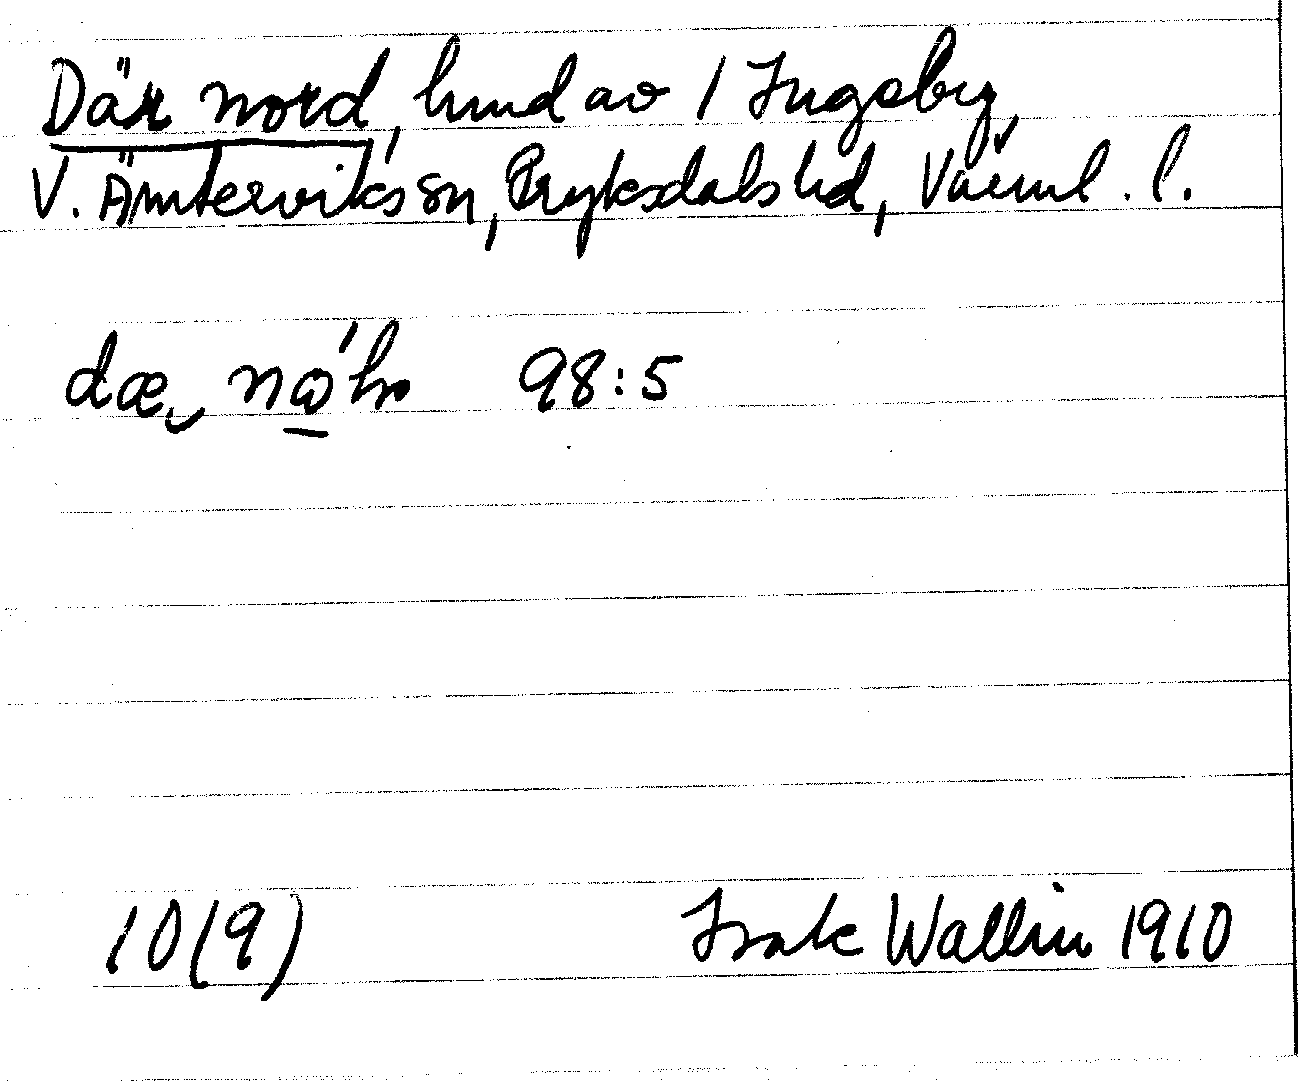 Där nord, hmd av 1 Ingsby,
V. Ämterviks sn, Fryksdals hd, Värml. l.
98:5
10(9) Isak Wallin 1910